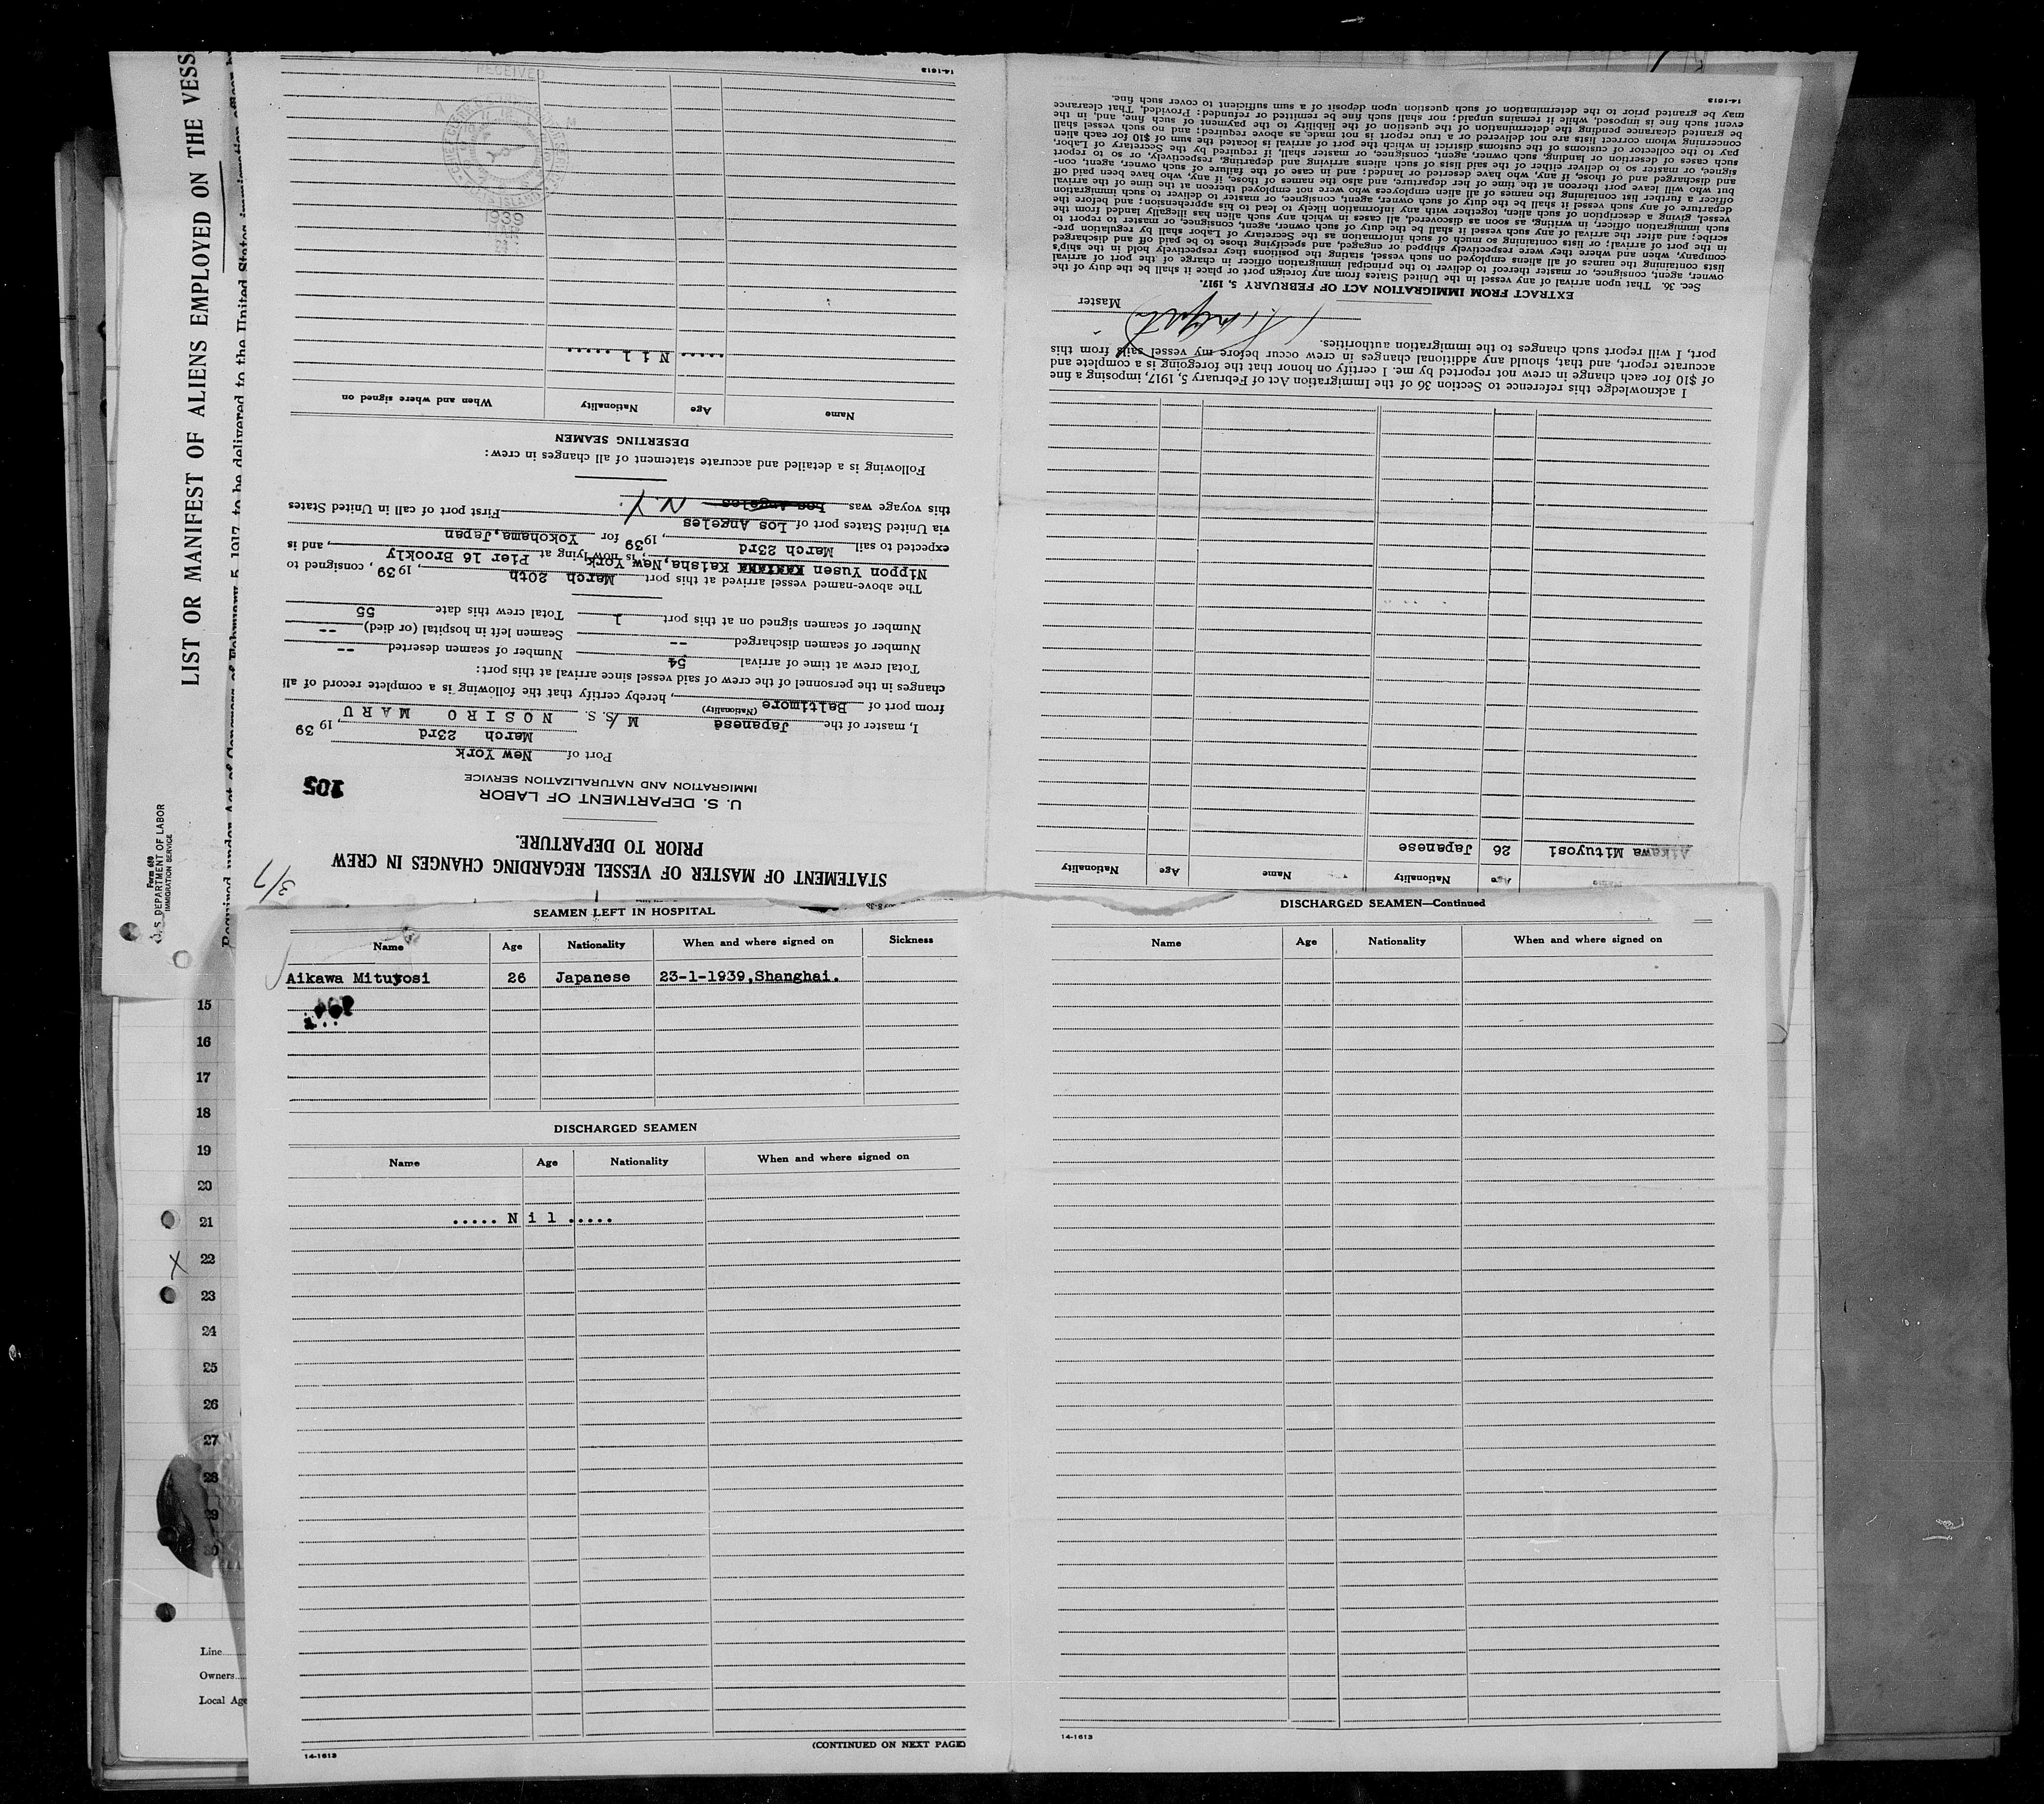 LIST OR MANIFEST OF ALIENS EMPLOYED ON THE VESS
Required under Act of Congress of February 5, 1917, to be delivered to the United States immigration officer
Form 680
U. S. DEPARTMENT OF LABOR
IMMIGRATION SERVICE
3/7
STATEMENT OF MASTER OF VESSEL REGARDING CHANGES IN CREW
PRIOR TO DEPARTURE.
U. S. DEPARTMENT OF LABOR
IMMIGRATION AND NATURALIZATION SERVICE
105
Port of New York
March 23rd, 19 39
I, master of the Japanese M/S. S. NOSIRO MARU
(Nationality)
from port of Baltimore, hereby certify that the following is a complete record of all
changes in the personnel of the crew of said vessel since arrival at this port:
Total crew at time of arrival 54 Number of seamen deserted --
Number of seamen discharged -- Seamen left in hospital (or died) --
Number of seamen signed on at this port 1 Total crew this date 55
The above-named vessel arrived at this port March 20th, 1939, consigned to
Nippon Yusen Kaisha, New York, is now lying at Pier 16 Brookly, and is
expected to sail March 23rd, 1939 for Yokohama, Japan
via United States port of Los Angeles First port of call in United States
this voyage was Los Angeles N. Y.
Following is a detailed and accurate statement of all changes in crew:
DESERTING SEAMEN
Name Age Nationality When and where signed on
.....Nil.....
RECEIVED
1939
14-1613
Name Age Nationality Name Age Nationality
Aikawa Mituyosi 26 Japanese
I acknowledge this reference to Section 36 of the Immigration Act of February 5, 1917, imposing a fine
of $10 for each change in crew not reported by me. I certify on honor that the foregoing is a complete and
accurate report, and that, should any additional changes in crew occur before my vessel sails from this
port, I will report such changes to the immigration authorities.
Master
EXTRACT FROM IMMIGRATION ACT OF FEBRUARY 5, 1917.
Sec. 36. That upon arrival of any vessel in the United States from any foreign port or place it shall be the duty of the
owner, agent, consignee, or master thereof to deliver to the principal immigration officer in charge of the port of arrival
lists containing the names of all aliens employed on such vessel, stating the positions they respectively hold in the ship's
company, when and where they were respectively shipped or engaged, and specifying those to be paid off and discharged
in the port of arrival; or lists containing so much of such information as the Secretary of Labor shall by regulation pre-
scribe; and after the arrival of any such vessel it shall be the duty of such owner, agent, consignee, or master to report to
such immigration officer, in writing, as soon as discovered, all cases in which any such alien has illegally landed from the
vessel, giving a description of such alien, together with any information likely to lead to his apprehension; and before the
departure of any such vessel it shall be the duty of such owner, agent, consignee, or master to deliver to such immigration
officer a further list containing the names of all alien employees who were not employed thereon at the time of the arrival
but who will leave port thereon at the time of her departure, and also the names of those, if any, who have been paid off
and discharged and of those, if any, who have deserted or landed; and in case of the failure of such owner, agent, con-
signee, or master so to deliver either of the said lists of such aliens arriving and departing, respectively, or so to report
such cases of desertion or landing, such owner, agent, consignee, or master shall, if required by the Secretary of Labor,
pay to the collector of customs of the customs district in which the port of arrival is located the sum of $10 for each alien
concerning whom correct lists are not delivered or a true report is not made, as above required; and no such vessel shall
be granted clearance pending the determination of the question of the liability to the payment of such fine, and, in the
event such fine is imposed, while it remains unpaid; nor shall such fine be remitted or refunded: Provided, That clearance
may be granted prior to the determination of such question upon deposit of a sum sufficient to cover such fine.
14-1613
SEAMEN LEFT IN HOSPITAL
Name Age Nationality When and where signed on Sickness
Aikawa Mituyosi 26 Japanese 23-1-1939,Shanghai.
DISCHARGED SEAMEN
Name Age Nationality When and where signed on
.....Nil.....
14-1613
(CONTINUED ON NEXT PAGE)
DISCHARGED SEAMEN—Continued
Name Age Nationality When and where signed on
14-1613
15
16
17
18
19
20
21
22
23
24
25
26
27
28
29
30
Line
Owners
Local Age